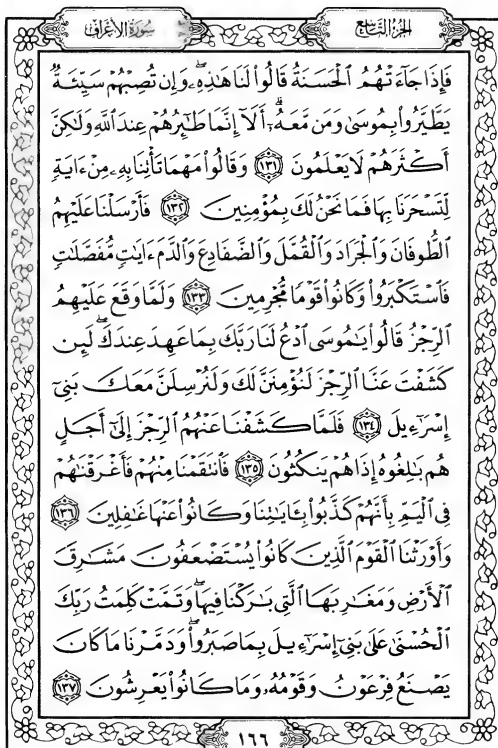 سُورَةُ الأَعْرَافِ
الجُزْءُ التَّاسِعُ
فَإِذَا جَآءَتْهُمُ ٱلْحَسَنَةُ قَالُوا۟ لَنَا هَـٰذِهِۦۖ وَإِن تُصِبْهُمْ سَيِّئَةٌ
يَطَّيَّرُوا۟ بِمُوسَىٰ وَمَن مَّعَهُۥٓۗ أَلَآ إِنَّمَا طَـٰٓئِرُهُمْ عِندَ ٱللَّهِ وَلَـٰكِنَّ
أَكْثَرَهُمْ لَا يَعْلَمُونَ ١٣١ وَقَالُوا۟ مَهْمَا تَأْتِنَا بِهِۦ مِنْ ءَايَةٍ
لِّتَسْحَرَنَا بِهَا فَمَا نَحْنُ لَكَ بِمُؤْمِنِينَ ١٣٢ فَأَرْسَلْنَا عَلَيْهِمُ
ٱلطُّوفَانَ وَٱلْجَرَادَ وَٱلْقُمَّلَ وَٱلضَّفَادِعَ وَٱلدَّمَ ءَايَـٰتٍ مُّفَصَّلَـٰتٍ
فَٱسْتَكْبَرُوا۟ وَكَانُوا۟ قَوْمًا مُّجْرِمِينَ ١٣٣ وَلَمَّا وَقَعَ عَلَيْهِمُ
ٱلرِّجْزُ قَالُوا۟ يَـٰمُوسَى ٱدْعُ لَنَا رَبَّكَ بِمَا عَهِدَ عِندَكَۖ لَئِن
كَشَفْتَ عَنَّا ٱلرِّجْزَ لَنُؤْمِنَنَّ لَكَ وَلَنُرْسِلَنَّ مَعَكَ بَنِىٓ
إِسْرَٰٓءِيلَ ١٣٤ فَلَمَّا كَشَفْنَا عَنْهُمُ ٱلرِّجْزَ إِلَىٰٓ أَجَلٍ
هُم بَـٰلِغُوهُ إِذَا هُمْ يَنكُثُونَ ١٣٥ فَٱنتَقَمْنَا مِنْهُمْ فَأَغْرَقْنَـٰهُمْ
فِى ٱلْيَمِّ بِأَنَّهُمْ كَذَّبُوا۟ بِـَٔايَـٰتِنَا وَكَانُوا۟ عَنْهَا غَـٰفِلِينَ ١٣٦
وَأَوْرَثْنَا ٱلْقَوْمَ ٱلَّذِينَ كَانُوا۟ يُسْتَضْعَفُونَ مَشَـٰرِقَ
ٱلْأَرْضِ وَمَغَـٰرِبَهَا ٱلَّتِى بَـٰرَكْنَا فِيهَاۖ وَتَمَّتْ كَلِمَتُ رَبِّكَ
ٱلْحُسْنَىٰ عَلَىٰ بَنِىٓ إِسْرَٰٓءِيلَ بِمَا صَبَرُوا۟ۖ وَدَمَّرْنَا مَا كَانَ
يَصْنَعُ فِرْعَوْنُ وَقَوْمُهُۥ وَمَا كَانُوا۟ يَعْرِشُونَ ١٣٧
١٦٦